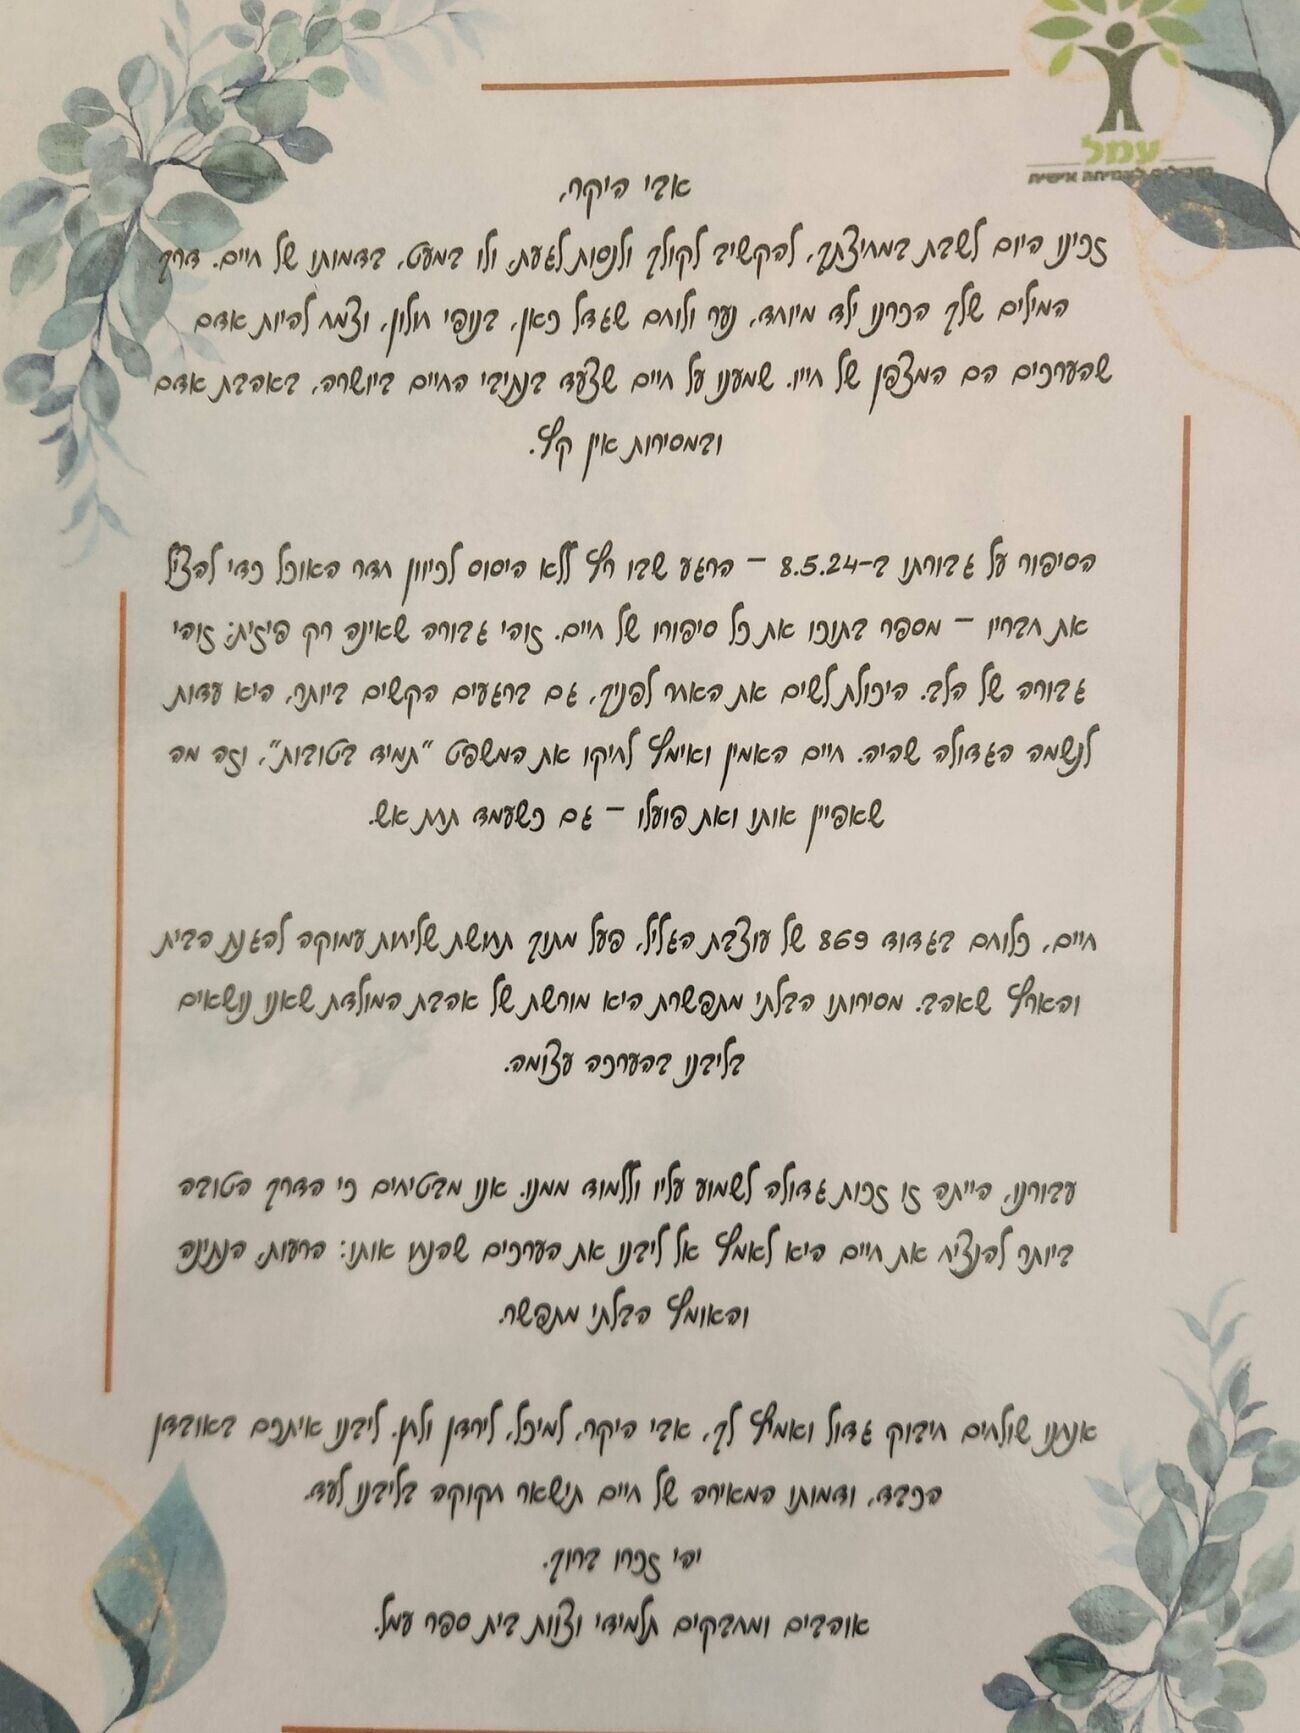 עמל
אבי היקר,
זכינו היום לשבת במחיצתך, להקשיב לקולך ולנסות לגעת, ולו במעט, בדמותו של חיים. דרך
המילים שלך הכרנו ילד מיוחד, נער ולוחם שגדל כאן, בנופי חולון, וצמח להיות אדם
שהערכים הם המצפן של חייו. שמענו על חיים שצעד בנתיבי החיים ביושרה, באהבת אדם
ובמסירות אין קץ.
הסיפור על גבורתו ב-8.5.24 – הרגע שבו רץ ללא היסוס לכיוון חדר האוכל כדי להציל
את חבריו – מספר בתוכו את כל סיפורו של חיים. זוהי גבורה שאינה רק פיזית; זוהי
גבורה של הלב. היכולת לשים את האחר לפניך, גם ברגעים הקשים ביותר, היא עדות
לנשמה הגדולה שהיה. חיים האמין ואימץ לחיקו את המשפט "תמיד בטובות", וזה מה
שאפיין אותו ואת פועלו – גם כשעמד תחת אש.
חיים, כלוחם בגדוד 869 של עוצבת הגליל, פעל מתוך תחושת שליחות עמוקה להגנת הבית
והארץ שאהב. מסירותו הבלתי מתפשרת היא מורשת של אהבת המולדת שאנו נושאים
בליבנו בהערכה עצומה.
עבורנו, הייתה זו זכות גדולה לשמוע עליו וללמוד ממנו. אנו מבטיחים כי הדרך הטובה
ביותר להנציח את חיים היא לאמץ אל ליבנו את הערכים שהנחו אותו: הרעות, הנתינה
והאומץ הבלתי מתפשר.
אנחנו שולחים חיבוק גדול ואמיץ לך, אבי היקר, למיכל, לירדן ולחן. ליבנו איתכם באובדן
הכבד, ודמותו המאירה של חיים תישאר חקוקה בליבנו לעד.
יהי זכרו ברוך.
אוהבים ומחבקים תלמידי וצוות בית ספר עמל.